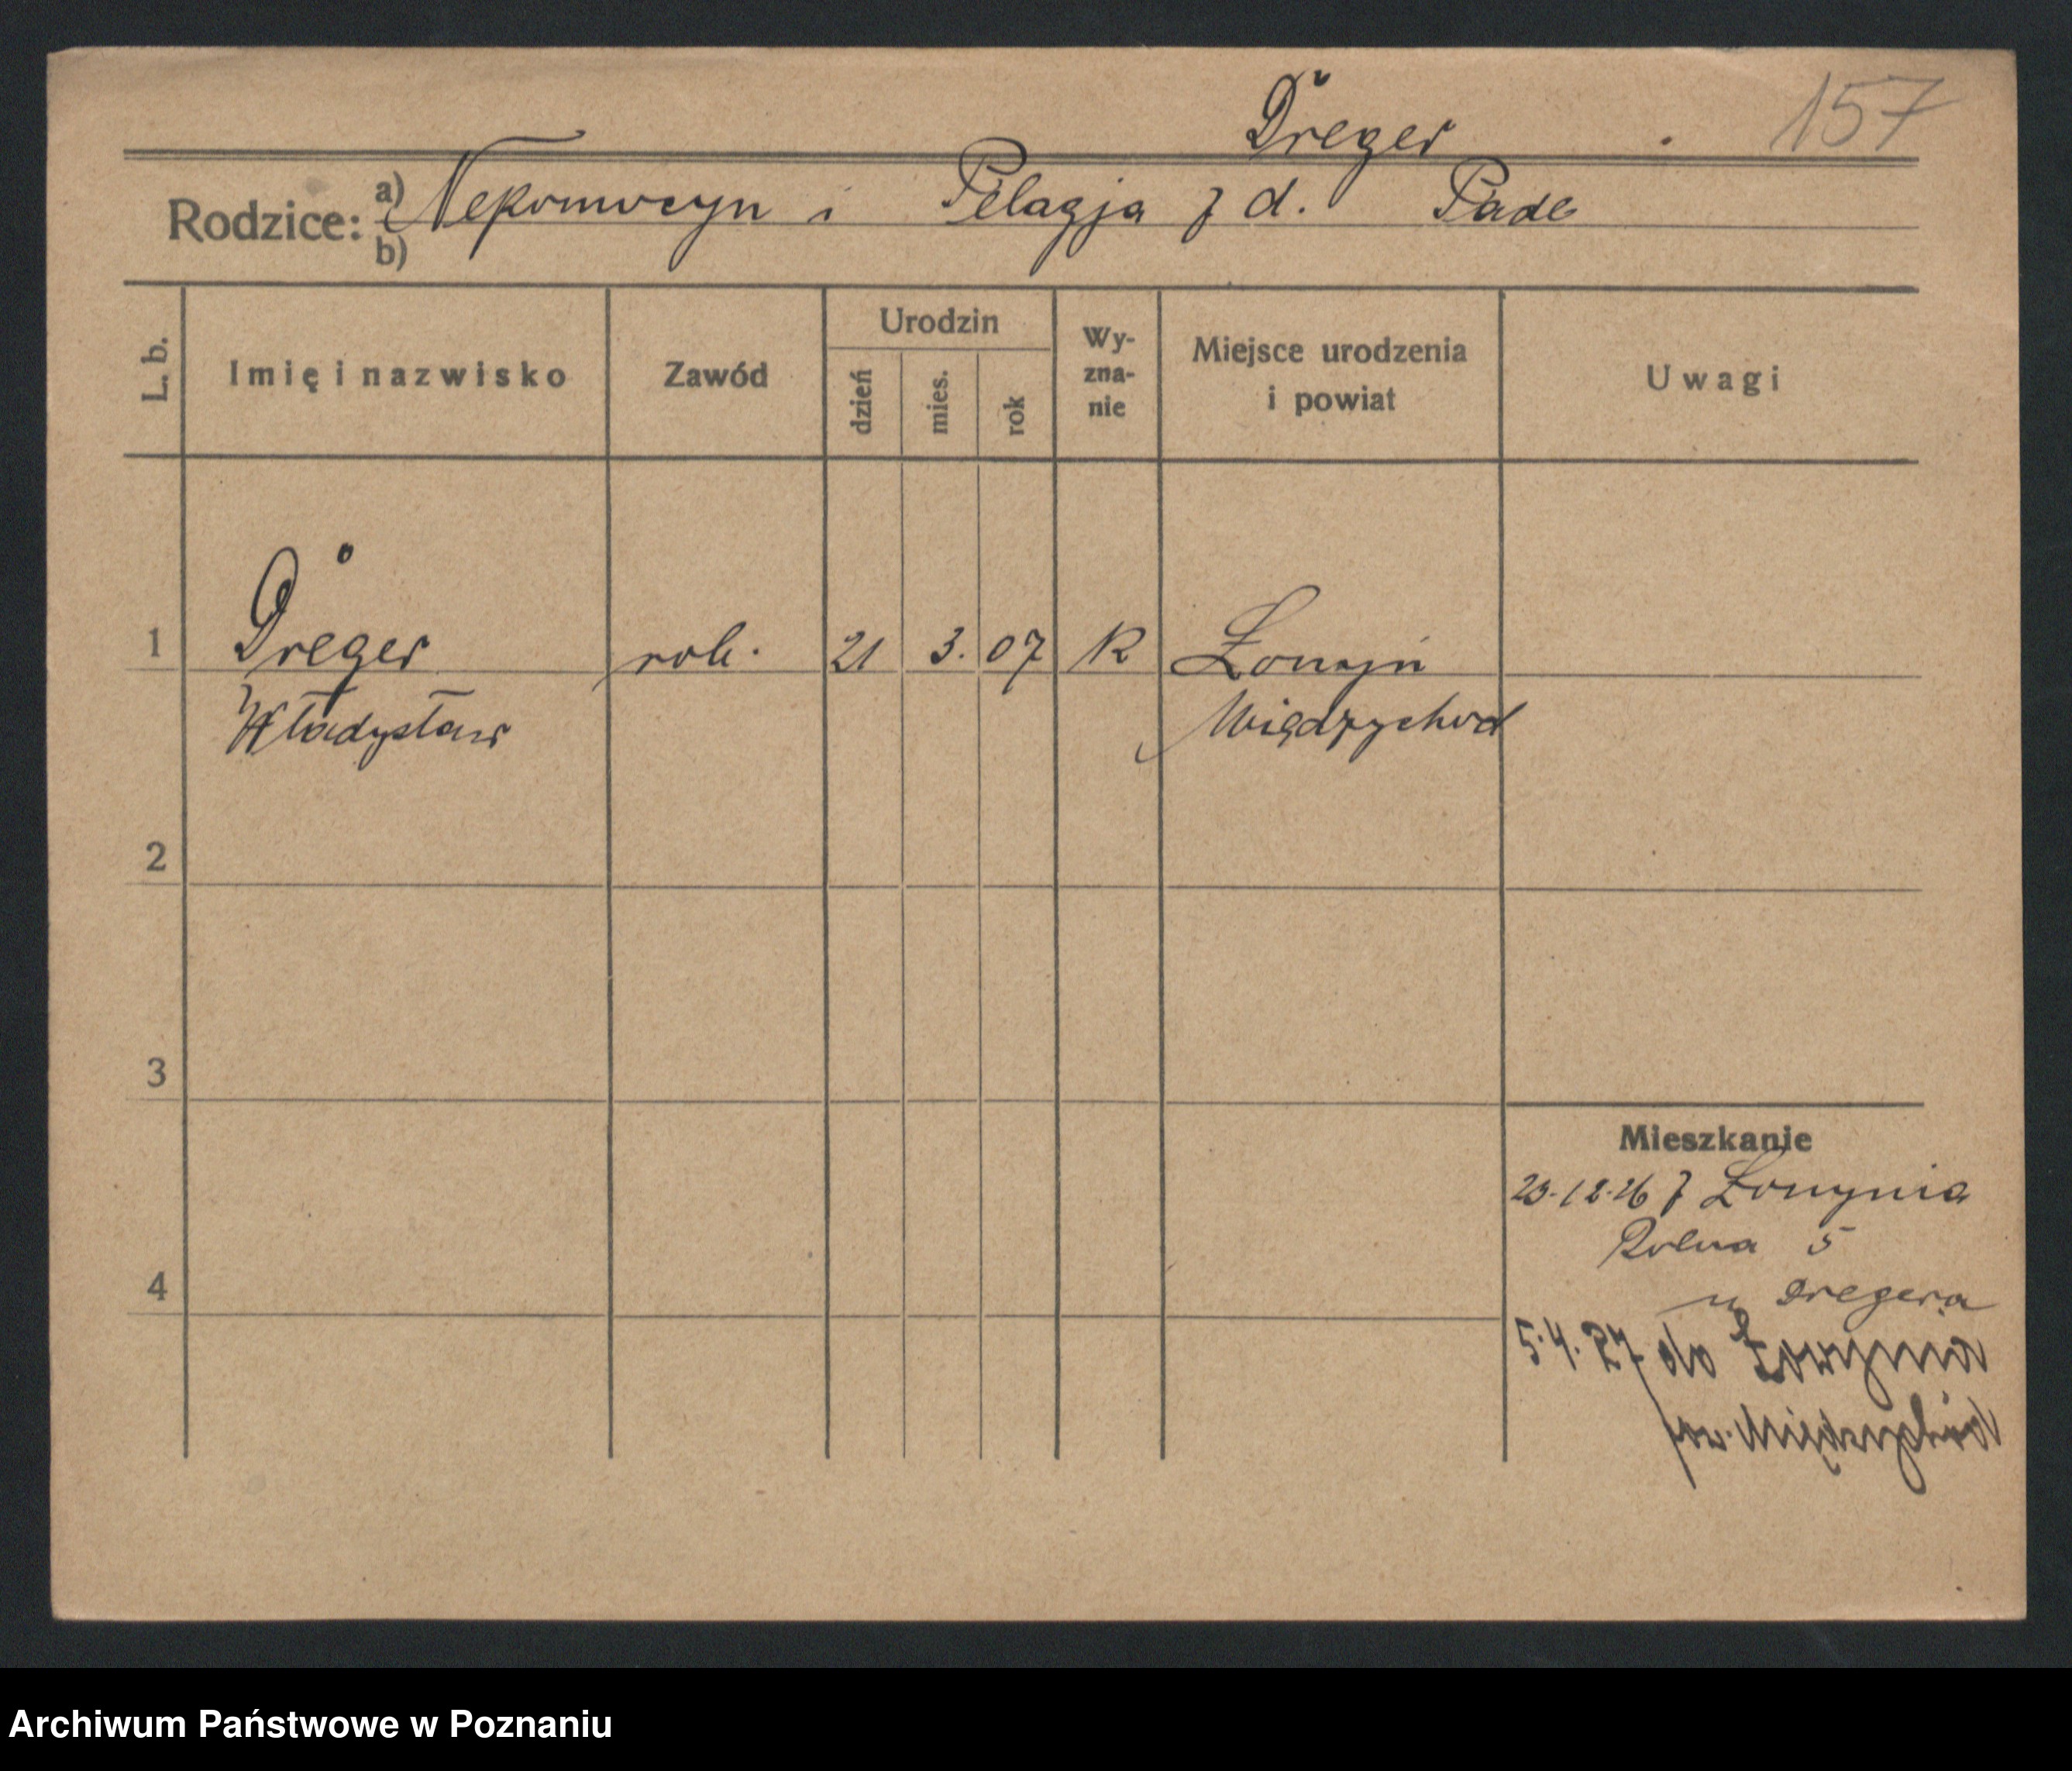 Dreger 157
Rodzice: a) Nepomucyn i Pelagja z d. Pade
b)
L. b. Imię i nazwisko Zawód Urodzin dzień mies. rok Wy-zna-nie Miejsce urodzenia i powiat Uwagi
1 Dreger rob. 21 3. 07 K Łowyń
Władysław Międzychod
2
3
Mieszkanie
23.12.26 z Łowynia
Rolna 5
4
u Dregera
5.4.27 do Łowynia
pow. Międzychód
Archiwum Państwowe w Poznaniu